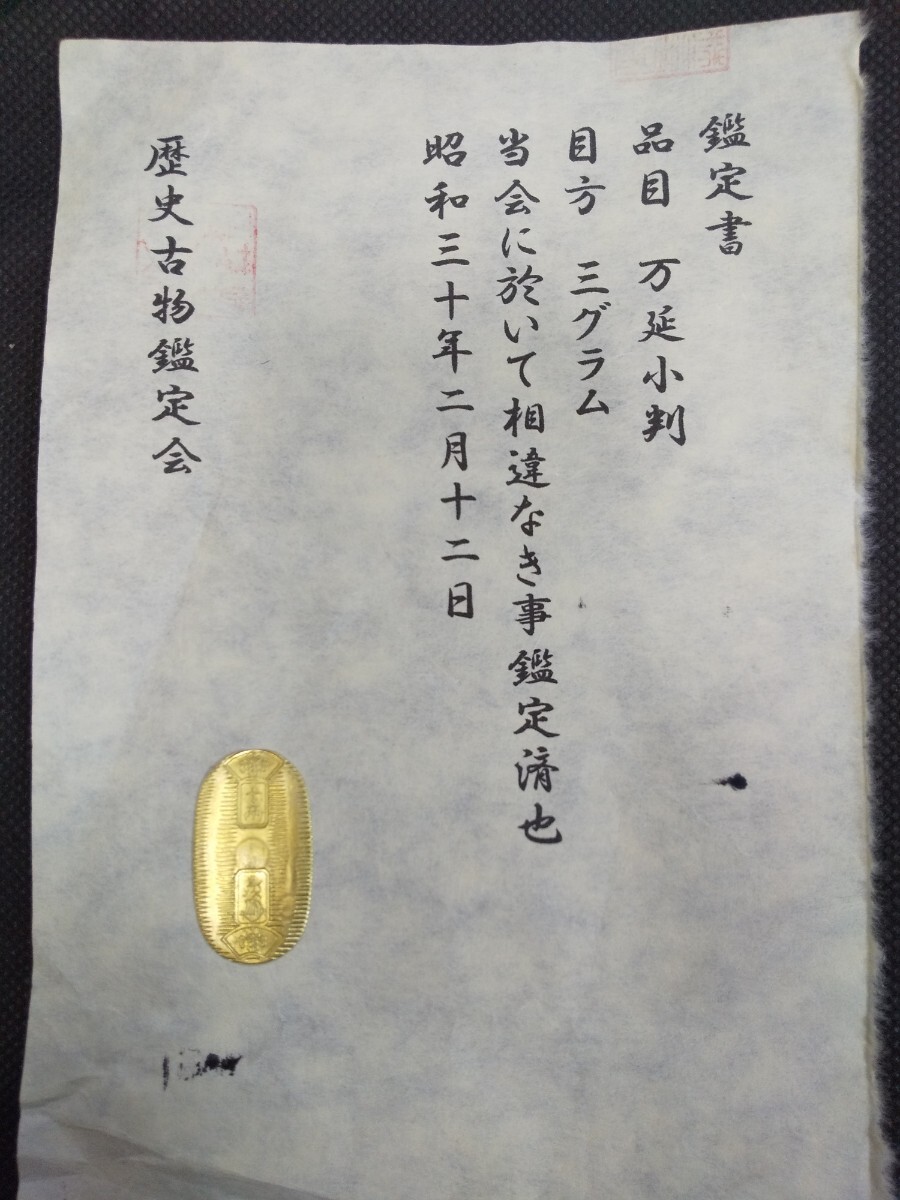 鑑定書
品目 万延小判
目方 三グラム
当会に於いて相違なき事鑑定済也
昭和三十年二月十二日
歴史古物鑑定会